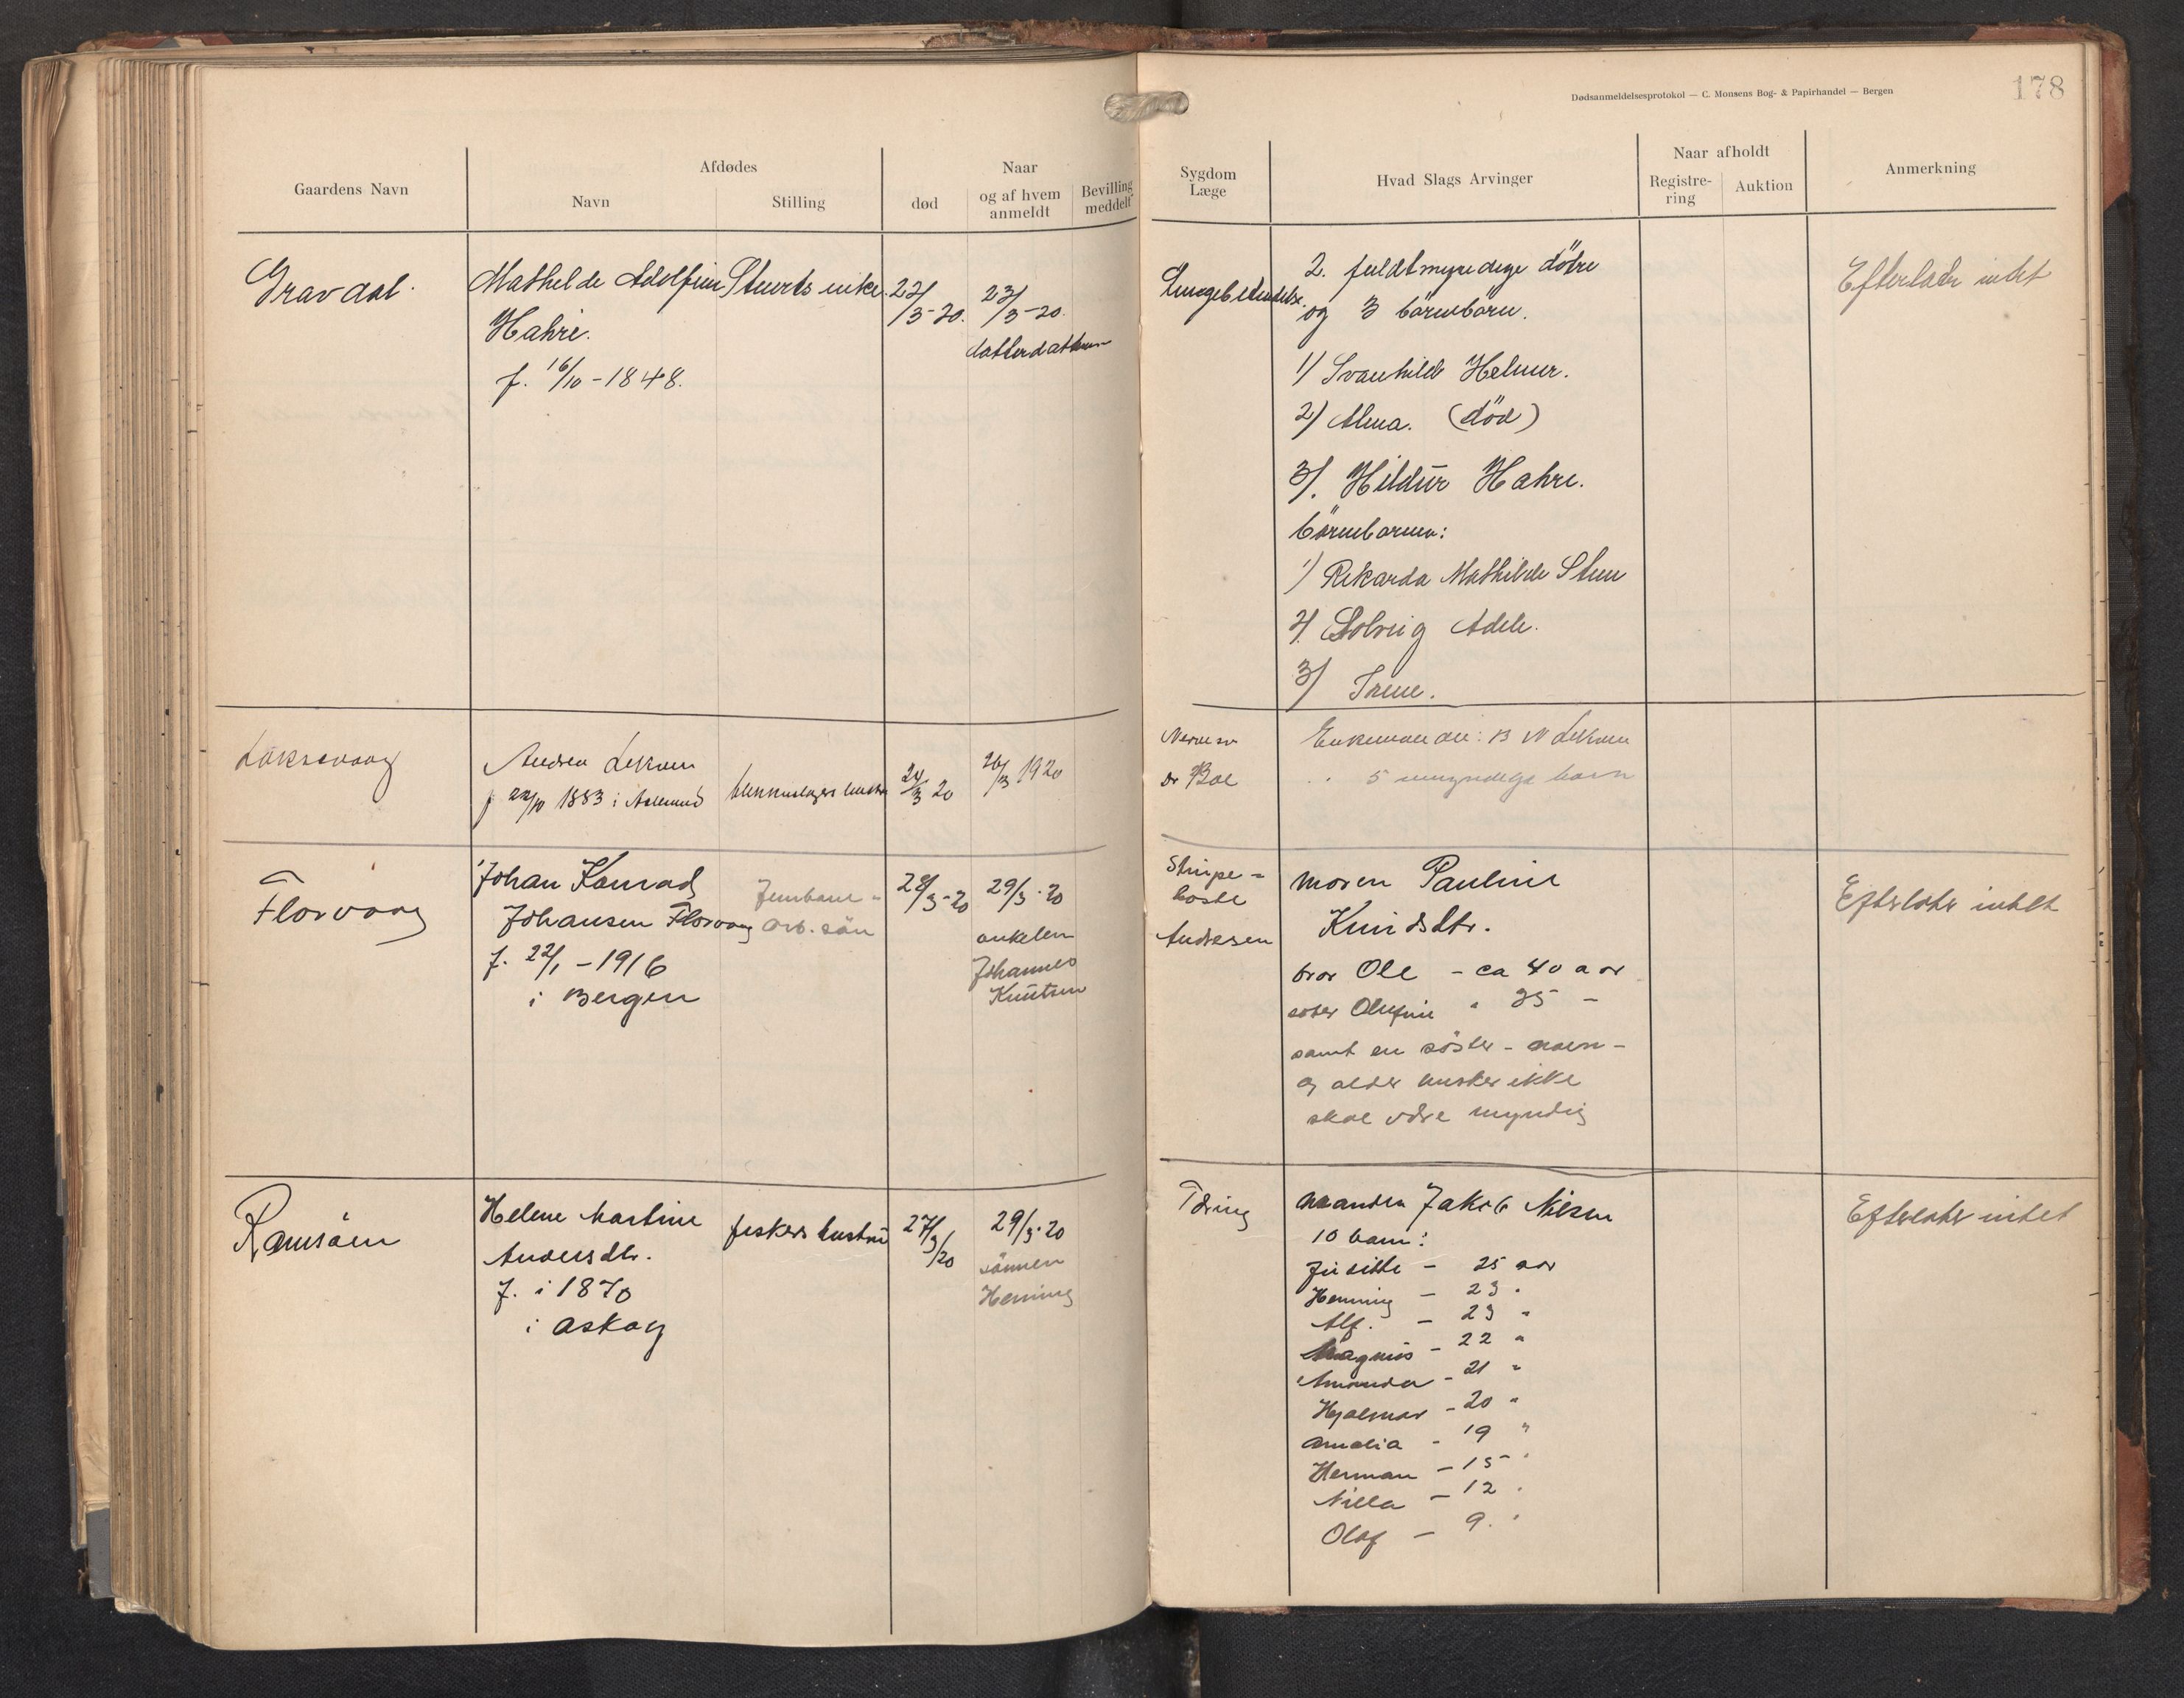 Dødsanmeldelsesprotokol — C. Monsens Bog- & Papirhandel — Bergen
178
Gaardens Navn
Afdødes
Navn
Stilling
Naar
død
og af hvem anmeldt
Bevilling meddelt
Sygdom
Læge
Hvad Slags Arvinger
Naar afholdt
Registre-
ring
Auktion
Anmerkning
Gravdal.
Mathelde Adolfine
Hahre.
f. 16/10 - 1848.
Stuerts enke.
22/3-20.
23/3-20.
datterdatteren
Lungebetendelse.
2. fuldtmyndige døtre
og 3 børnebørn.
1/ Svanhild Helmer.
2/ Alma. (död)
3/. Hildur Hahre.
börnebarnen:
1/ Rikarda Mathilde
2/. Solveig Adele.
3/ Irene.
Efterlader intet
Laksevaag
Andrea
f 22/10 1883 i Aalesund
blikkenslagers hustru
24/3 20
26/3 1920
Dr Boe
Enkemanden: B N
5 umyndige barn
Florvaag
Johan Konrad
Johansen Florvaag
f. 22/1 - 1916
i Bergen
Jernbane-
arb. sön
28/3-20
29/3-20
onkelen
Johannes
Knutsen
Strupe-
hoste
Andresen
moren Pauline
Knudsdtr.
bror Ole - ca 40 aar
söster Olufine " 35 -
samt en söster - navn -
og alder husker ikke
skal være myndig
Efterlater intet
Ramsöen
Helene Martine
Andersdtr.
f. i 1870
i Askøy
fiskers hustru
27/3/20
29/3-20
sönnen
Henning
Tæring
manden Jakob Nilsen
10 barn:
- 25 aar
Henning - 23 "
Alf. - 23 "
Magnus - 22 "
Amanda - 21 "
Hjalmar - 20 "
Amalia - 19 "
Herman - 15 "
Nilla - 12 "
Olaf - 9. "
Efterlater intet